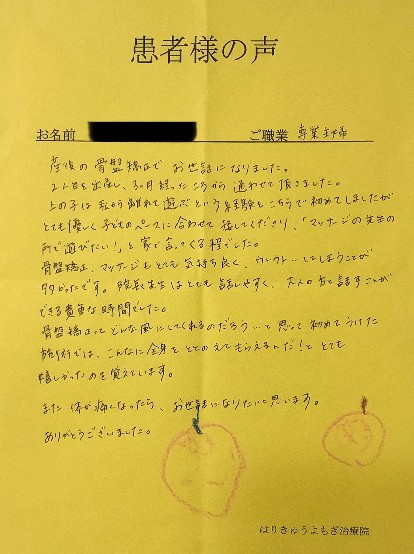 患者様の声
お名前
ご職業 専業主婦
産後の骨盤矯正で お世話になりました。
2人目を出産し、3ヶ月経ったころから通わせて頂きました。
上の子は私から離れて遊ぶという経験をこちらで初めてしましたが
とても優しく子どものペースに合わせて接してくださり、「マッサージの先生の
所で遊びたい!」と家で言ってくる程でした。
骨盤矯正、マッサージもとても気持ち良く、ウトウト…としてしまうことが
多かったです。院長先生はとても話しやすく、大人の方と話すことが
できる貴重な時間でした。
骨盤矯正ってどんな風にしてくれるのだろう…と思って初めてうけた
施術では、こんなに全身をととのえてもらえるんだ!ととても
嬉しかったのを覚えています。
また体が痛くなったら、お世話になりたいと思います。
ありがとうございました。
はりきゅうよもぎ治療院